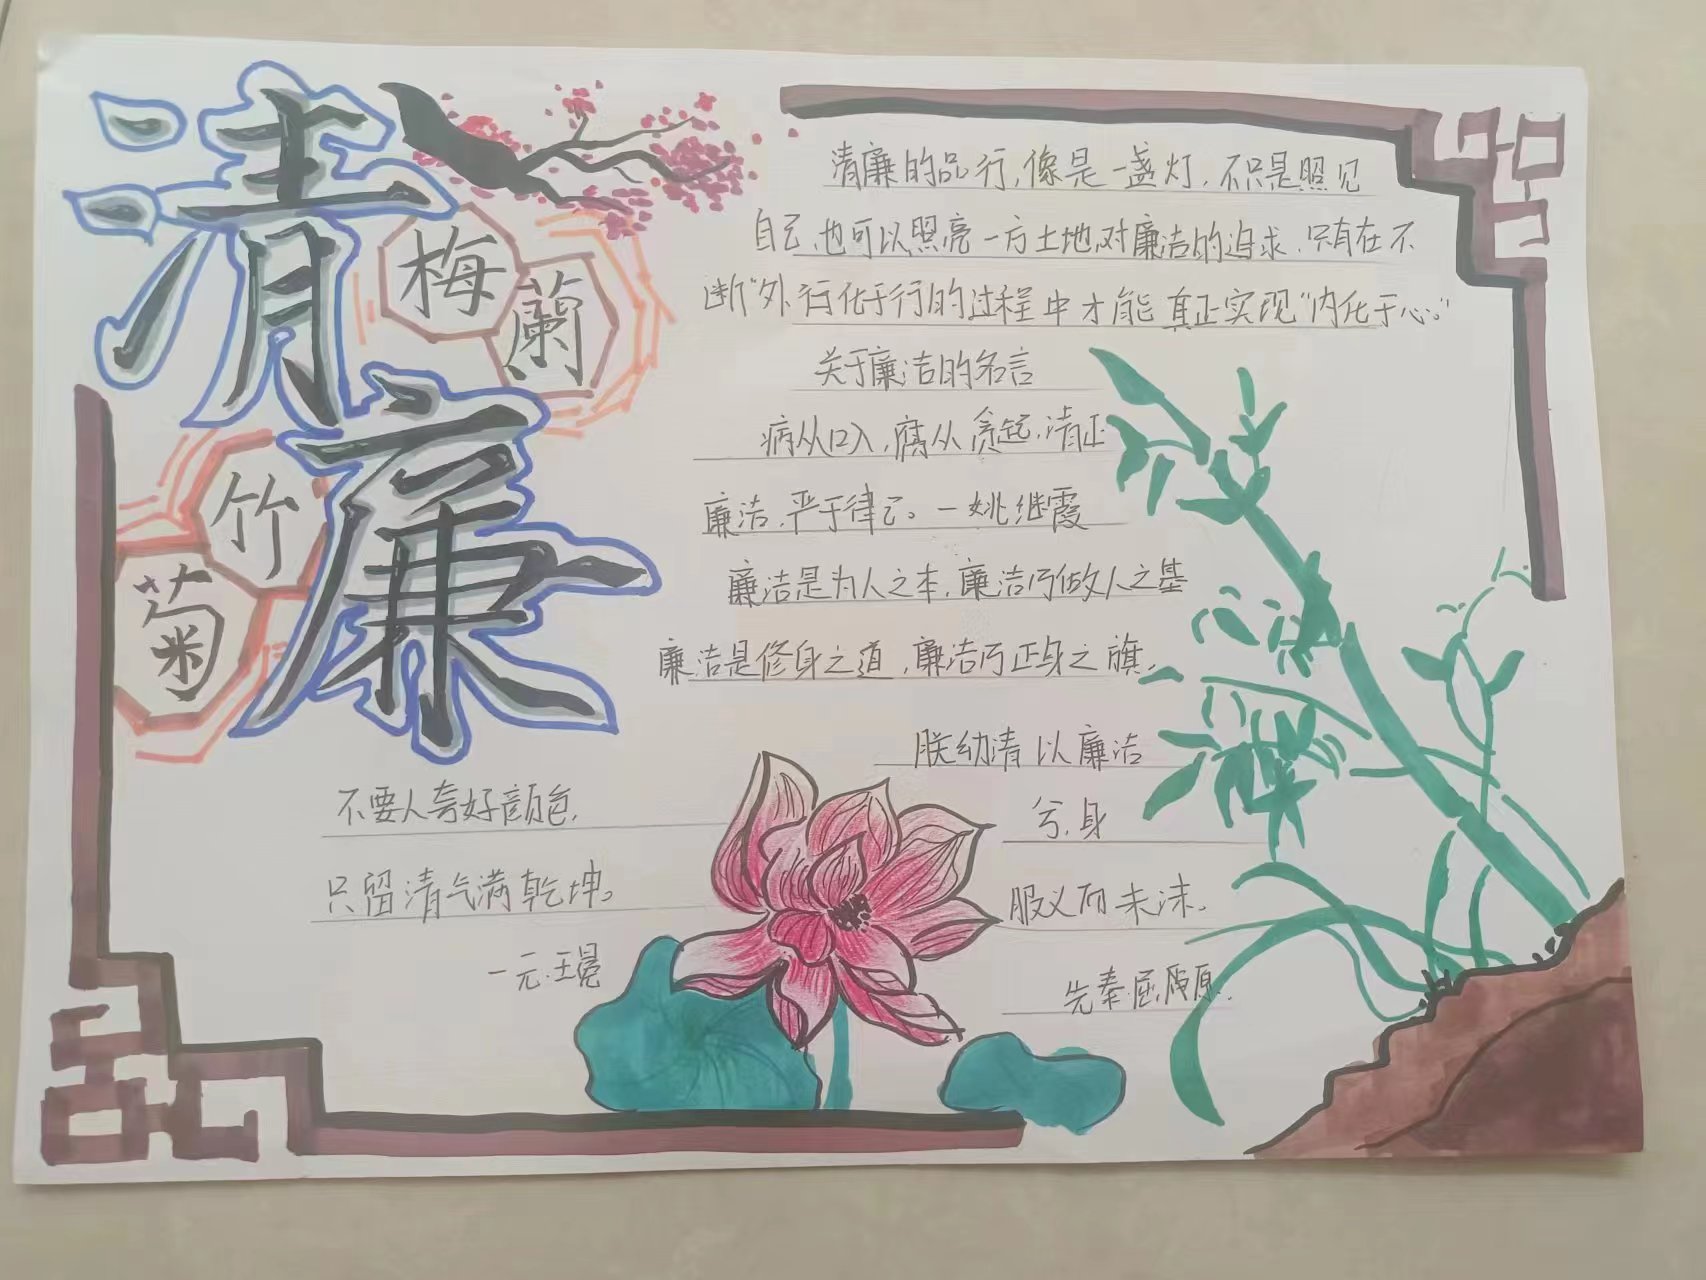 清廉
梅
蘭
竹
菊
清廉的品行，像是一盏灯，不只是照见
自己，也可以照亮一方土地，对廉洁的追求，只有在不
断“外行化于行的过程中才能真正实现“内化于心。”
关于廉洁的名言
病从口入，腐从贪起，清正
廉洁，严于律己。一姚继霞
廉洁是为人之本，廉洁乃做人之基
廉洁是修身之道，廉洁乃正身之旗。
朕幼清以廉洁
兮，身
服义而未沫。
先秦·屈原
不要人夸好颜色，
只留清气满乾坤。
一元·王冕